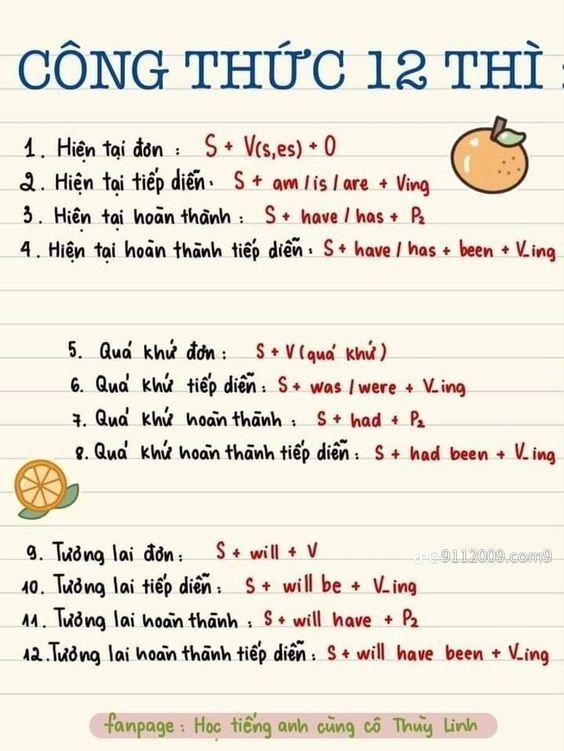 CÔNG THỨC 12 THÌ :
1. Hiện tại đơn : S + V(s,es) + O
2. Hiện tại tiếp diễn. S + am / is / are + Ving
3. Hiện tại hoàn thành : S + have / has + P₂
4. Hiện tại hoàn thành tiếp diễn : S + have / has + been + V_ing
5. Quá khứ đơn : S + V (quá khứ)
6. Quá khứ tiếp diễn : S + was / were + V_ing
7. Quá khứ hoàn thành : S + had + P₂
8. Quá khứ hoàn thành tiếp diễn : S + had been + V_ing
9. Tương lai đơn : S + will + V
@9112009.com9
10. Tương lai tiếp diễn : S + will be + V_ing
11. Tương lai hoàn thành : S + will have + P₂
12. Tương lai hoàn thành tiếp diễn : S + will have been + V_ing
fanpage : Học tiếng anh cùng cô Thùy Linh